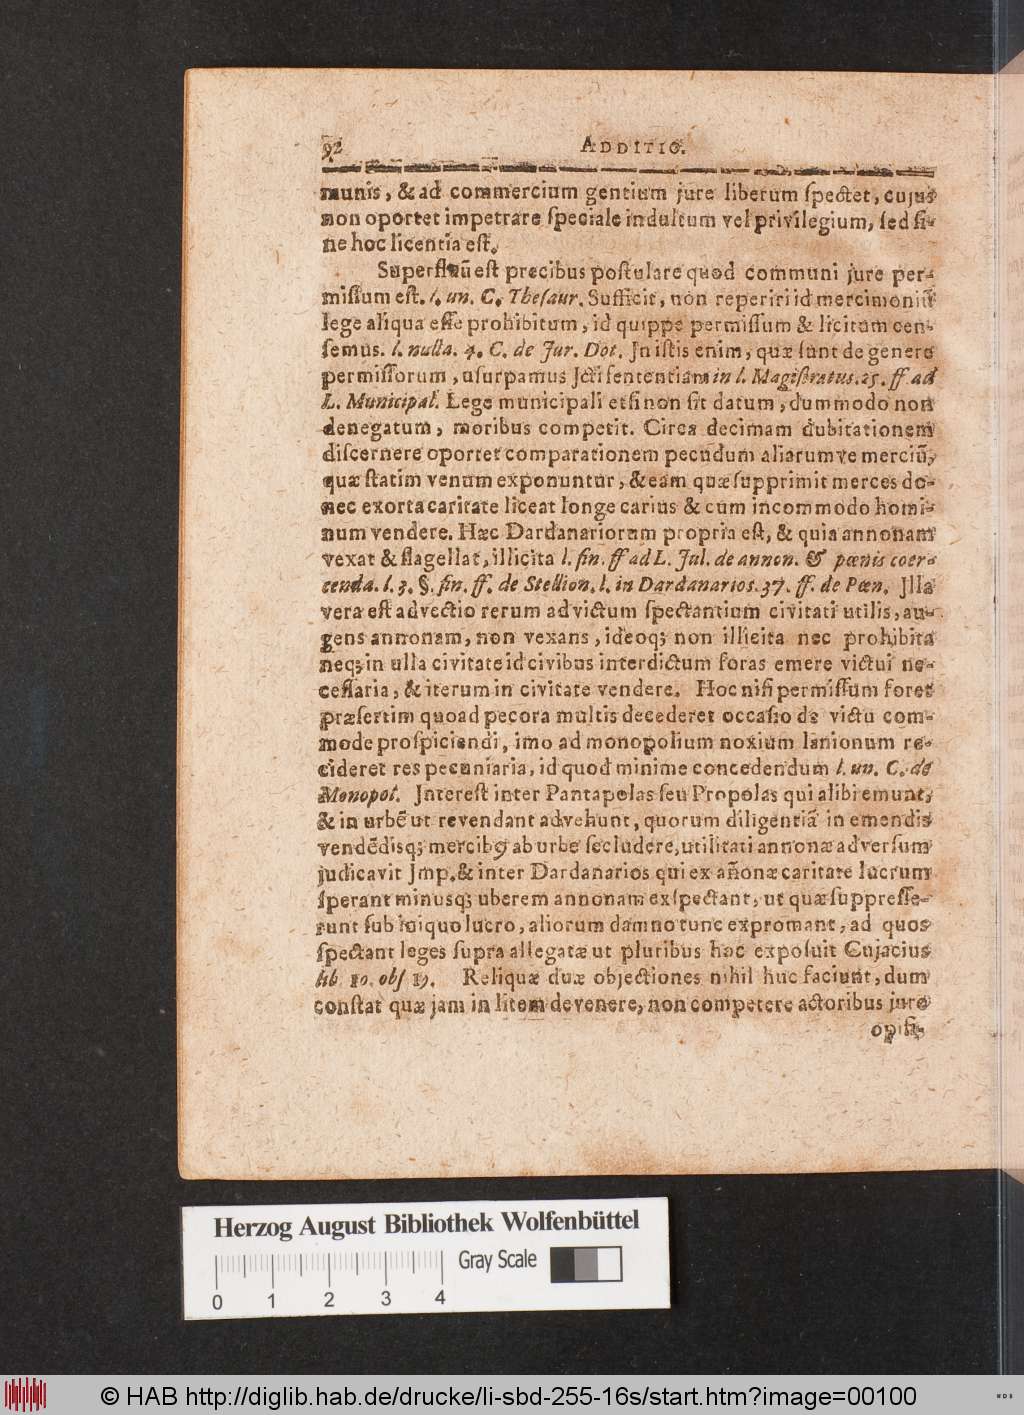 92 ADDITIO.
munis, & ad commercium gentium jure liberum ſpectet, cujus
non oportet impetrare ſpeciale indultum vel privilegium, ſed ſi-
ne hoc licentia eſt.
Superfluũ eſt precibus poſtulare quod communi jure per-
miſſum eſt. l. un. C. Theſaur. Sufficit, non reperiri id mercimoniũ
lege aliqua eſſe prohibitum, id quippe permiſſum & licitum cen-
ſemus. l. nulla. 4. C. de Jur. Dot. Jn iſtis enim, quæ ſunt de genere
permiſſorum, uſurpamus Jcti ſententiam in l. Magiſtratus. 25. ff ad
L. Municipal. Lege municipali etſi non ſit datum, dummodo non
denegatum, moribus competit. Circa decimam dubitationem
diſcernere oportet comparationem pecudum aliarumve merciũ,
quæ ſtatim venum exponuntur, & eam quæ ſupprimit merces do-
nec exorta caritate liceat longe carius & cum incommodo homi-
num vendere. Hæc Dardanariorum propria eſt, & quia annonam
vexat & flagellat, illicita l. fin. ff ad L. Jul. de annon. & pœnis coer-
cenda. l. 3. §. fin. ff. de Stellion. l. in Dardanarios. 37. ff. de Pœn. Jlla
vera eſt advectio rerum ad victum ſpectantium civitati utilis, au-
gens annonam, non vexans, ideoq; non illicita nec prohibita
neq; in ulla civitate id civibus interdictum foras emere victui ne-
ceſſaria, & iterum in civitate vendere. Hoc niſi permiſſum foret
præſertim quoad pecora multis decederet occaſio de victu com-
mode proſpiciendi, imo ad monopolium noxium lanionum re-
cideret res pecuniaria, id quod minime concedendum l. un. C. de
Monopol. Jntereſt inter Pantapolas ſeu Propolas qui alibi emunt,
& in urbẽ ut revendant advehunt, quorum diligentiã in emendis
vendẽdisq; mercibꝰ ab urbe ſecludere, utilitati annonæ adverſum
judicavit Jmp. & inter Dardanarios qui ex añonæ caritate lucrum
ſperant minusq; uberem annonam exſpectant, ut quæ ſuppreſſe-
runt ſub iniquo lucro, aliorum damno tunc expromant, ad quos
ſpectant leges ſupra allegatæ ut pluribus hoc expoſuit Cujacius
lib 10. obſ 19. Reliquæ duæ objectiones nihil huc faciunt, dum
conſtat quæ jam in litem devenere, non competere actoribus jure
opifi-
Herzog August Bibliothek Wolfenbüttel
Gray Scale
0 1 2 3 4
© HAB http://diglib.hab.de/drucke/li-sbd-255-16s/start.htm?image=00100
WDB